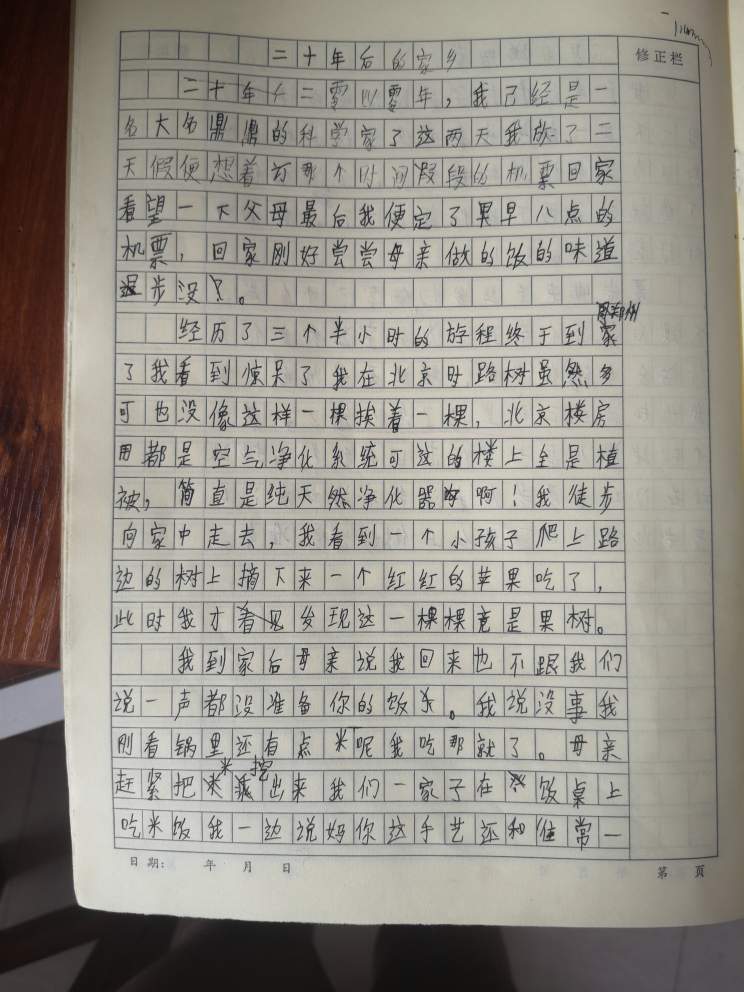 修正栏
二十年后的家乡
二十年 二零四零年，我已经是一
名大名鼎鼎的科学家了这两天我放了二
天假便想着订那个时间段的机票回家
看望一下父母最后我便定了早八点的
机票，回家刚好尝尝母亲做的饭的味道
退步没。
经历了三个半小时的旅程终于到家
了我看到惊呆了我在北京时路树虽然多
可也没像这样一棵挨着一棵，北京楼房
用都是空气净化系统可这的楼上全是植
被，简直是纯天然净化器啊！我徒步
向家中走去，我看到一个小孩子爬上路
边的树上摘下来一个红红的苹果吃了，
此时我才发现这一棵棵竟是果树。
我到家后母亲说我回来也不跟我们
说一声都没准备你的饭。我说没事我
刚看锅里还有点米呢我吃那就了。母亲
赶紧把米挖出来我们一家子在饭桌上
吃米饭我一边说妈你这手艺还和往常一
日期： 年 月 日
第 页